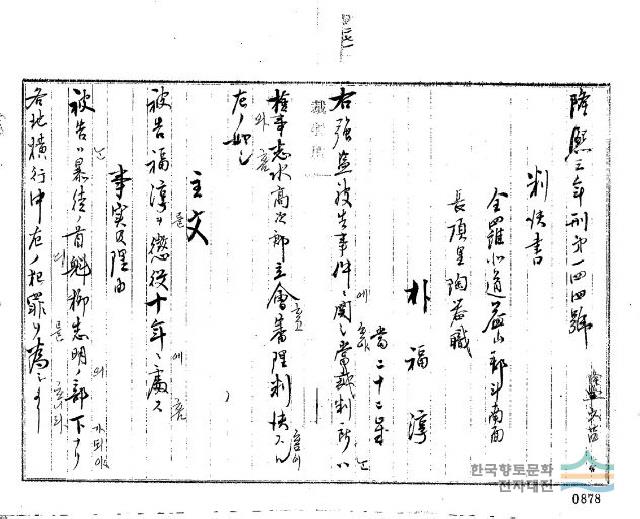 隆熙三年刑第一四四號
判決書
全羅北道益山郡斗南面
長項里陶器職
朴福淳
當二十二年
右強盜被告事件ニ關シ當裁判所ハ
檢事志水高次郎立會審理判決スル
左ノ如シ
主文
被告福淳ヲ懲役十年ニ處ス
事実及理由
被告ハ暴徒ノ首魁柳志明ノ部下トナリ
各地横行中左ノ犯罪ヲ為シタリ
한국향토문화
전자대전
0878